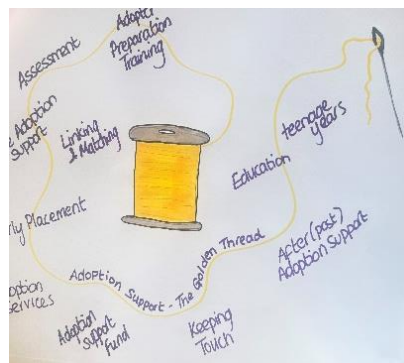 Adopter
Preparation
Training
Assessment
Adoption
Support
Linking
& Matching
Placement
Services
Adoption Support - The Golden Thread
Adoption
Support
Fund
Keeping
Touch
Education
teenage
years
After (post)
Adoption Support